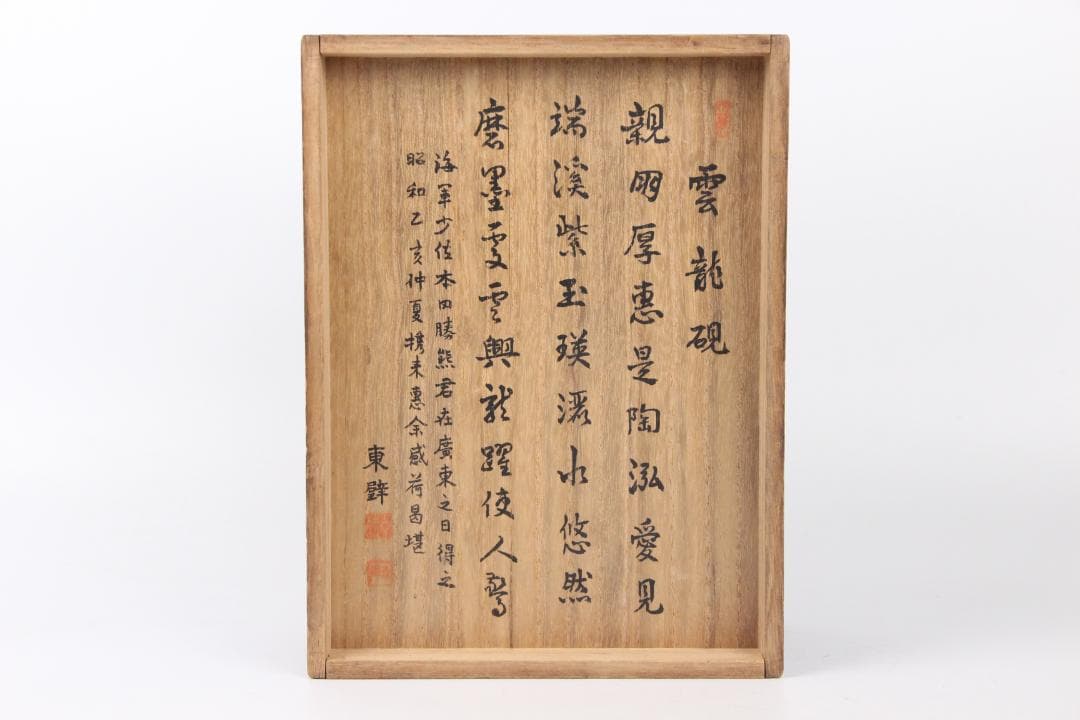 雲龍硯
親朋厚惠是陶泓愛見
端溪紫玉瑛滛水悠然
磨墨處雲興龍躍使人驚
海軍少佐本田勝熊君在廣東之日得之
昭和乙亥仲夏携来惠余感荷曷堪
東壁